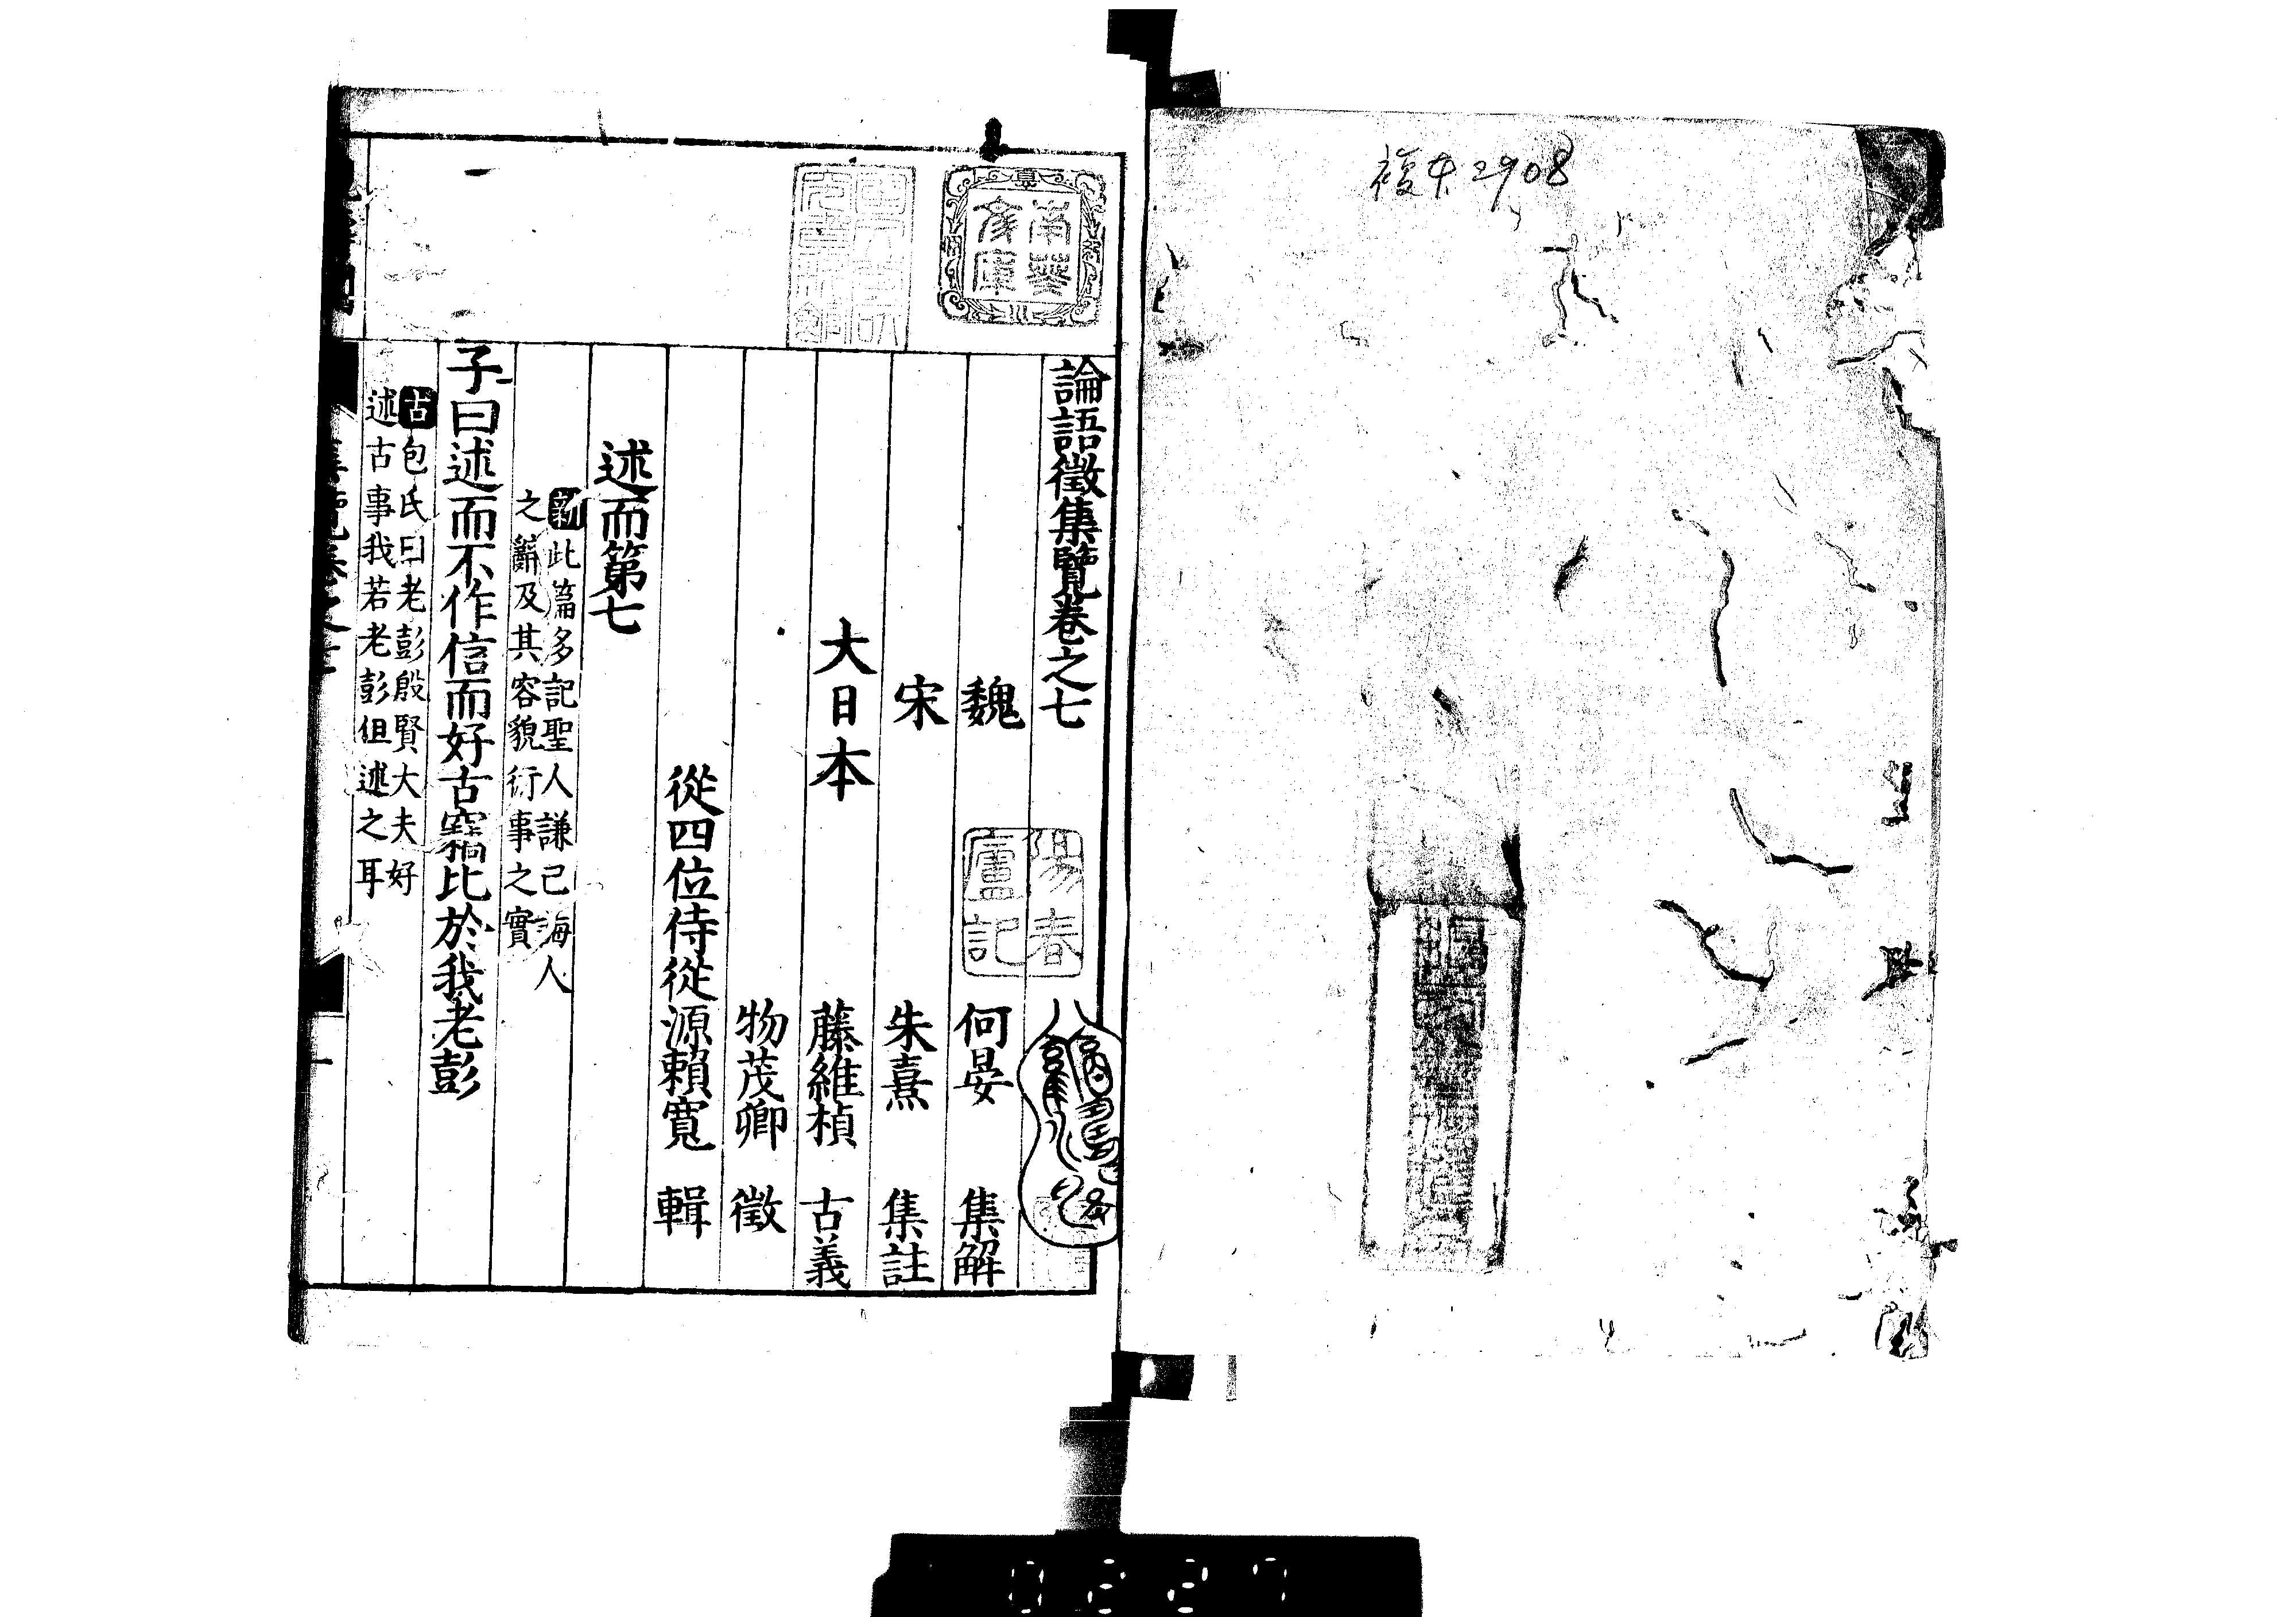 複本2908
南葵
文庫
論語徵集覽卷之七
陽春
廬記
魏 何晏 集解
宋 朱熹 集註
大日本 藤維楨 古義
物茂卿 徵
從四位侍從源賴寬 輯
述而第七
新此篇多記聖人謙己誨人
之辭及其容貌行事之實
子曰述而不作信而好古竊比於我老彭
古包氏曰老彭殷賢大夫好
述古事我若老彭但述之耳
一
0227